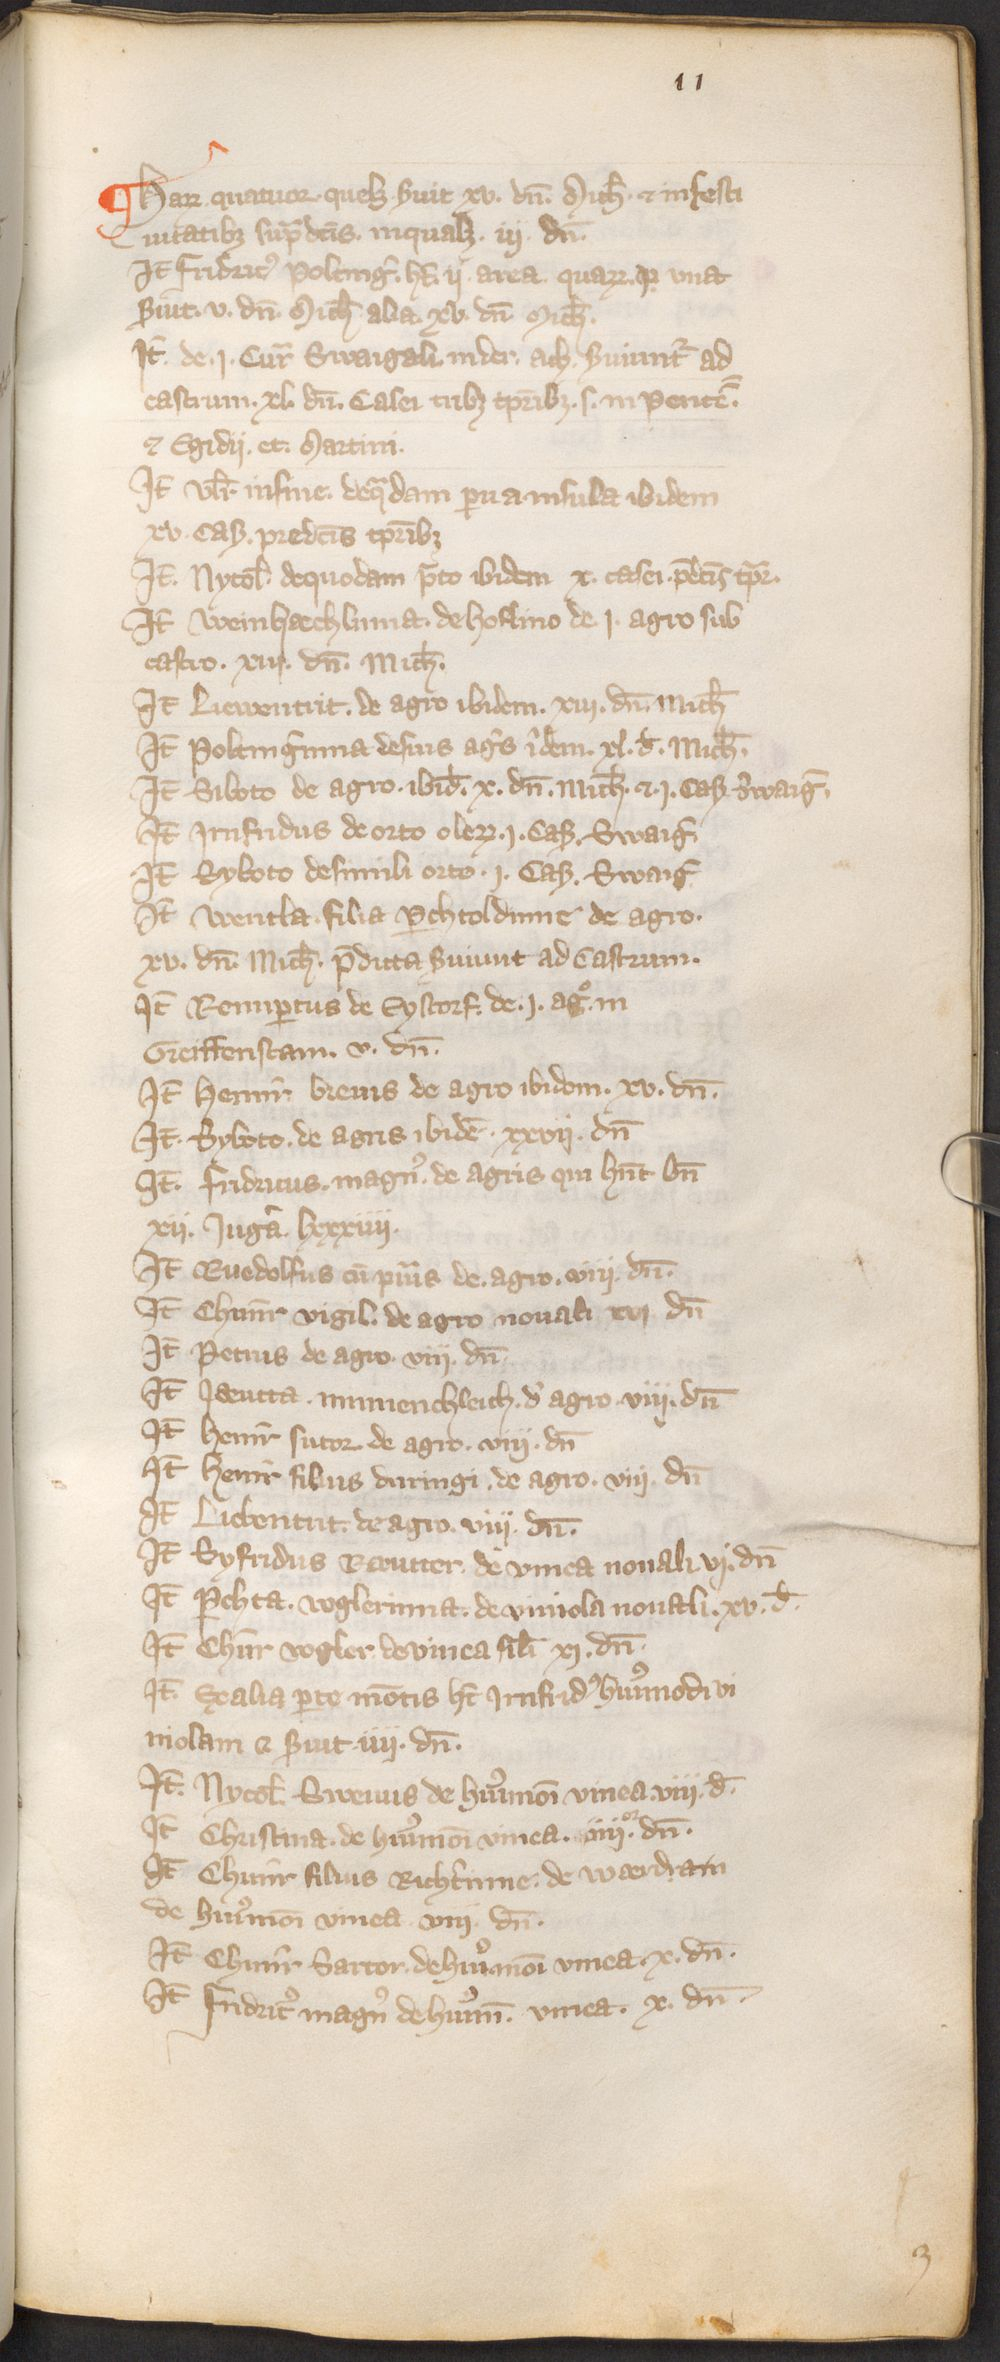 11
Harꝝ quatuor quelꝫ ẜuit xv. dn̄. Mich̄. ⁊ in festi
uitatibꝫ sup̄dc̄is. in qualꝫ. iij. dn̄.
It̄ Fridricꝰ Poltingˀ. ht̄. ij. area quarꝝ. una
ẜuit. v. dn̄. Mich̄ alia. xv. dn̄ Mich̄.
It̄. de. j. Cur̄ Swaigali. in der. ach. ẜuiunt̄ ad
castrum. xl. dn̄. Casei tribꝫ tp̄ribꝫ. s. in Pentc̄.
⁊ Egidij. et. Martini.
It̄ Vlr̄. in fine. de q̄dam parua insula ibidem
xv. Cas. predc̄is tp̄ribꝫ
It̄. Nycol̄. de quodam p̄to ibidem x. casei. p̄dc̄is tp̄r.
It̄ Weinhæchlinna. de hoflino de. j. agro sub
castro. xiij. dn̄. Mich̄.
It̄ Liewentrit. de agro ibidem. xiij. dn̄. Mich̄
It̄ Poltingˀinna de suis agˀs ib̄dem. xl. d̄. Mich̄.
It̄ Siboto de agro. ibid̄. x. dn̄. Mich̄. ⁊. j. Cas. Swaiḡ.
It̄ Irnfridus de orto olerꝝ. j. Cas. Swaiḡ
It̄ Syboto de simili orto. j. Cas. Swaiḡ
It̄ Wentla. filia Perhtoldinne de agro.
xv. dn̄. Mich̄. p̄dicta ẜuiunt ad Castrum.
It̄ Reinpertus de Eystorf. de. j. agͦ. in
Greiffenstain. v. dn̄.
It̄ Heinr̄ breuis de agro ibidem. xv. dn̄.
It̄. Syboto. de agris ibidē. xxvij. dn̄
It̄. Fridricus. magnꝰ. de agris qui hn̄t bn̄
xij. Jugˀa. lxxxiiij.
It̄ Ruedolfus cū pˀuis de. agro. viij. dn̄.
It̄ Chunr̄ vigil. de agro nouali xvj dn̄
It̄ Petrus de agro. viij. dn̄.
It̄ Jeutta. Immenchleich. dˀ agro. viij. dn̄
It̄ Heinr̄ sutor. de agro. viij. dn̄
It̄ Heinr̄ filius duringi. de agro. viij. dn̄
It̄ Liebentrit. de agro. viij. dn̄.
It̄ Syfridus Reutter. de vinea nouali vj. dn̄
It̄ Perhta. voglerinna. de viniola nouali. xv. d̄.
It̄ Chūnr̄ vogler de vinea sil̄i xj. dn̄.
It̄. Ex alia parte mōtis ht̄ Irnfridꝰ huiꝰmodi vi
niolam ⁊ ẜuit iiij. dn̄.
It̄. Nycol̄. Sweuus de huiꝰmōi vinea. viij. d̄.
It̄ Christina. de huiꝰmōi vinea. iiij.or dn̄.
It̄ Chunr̄ filius Richˀinne. de Wærdrain
de huiꝰmōi vinea viij. dn̄.
It̄ Chunr̄ Sartor. de huiꝰmōi vinea. x. dn̄.
It̄ Fridricꝰ magnꝰ de huiꝰm̄. vinea. x. dn̄.
3